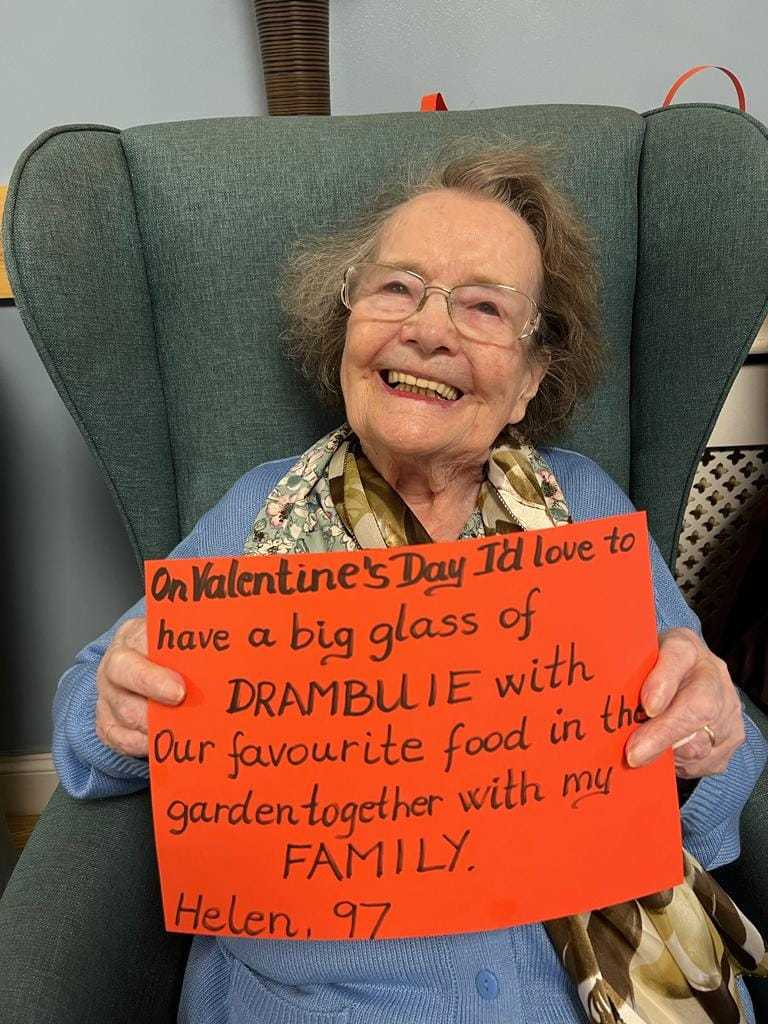 On Valentine's Day I'd love to
have a big glass of
DRAMBUIE with
Our favourite food in the
garden together with my
FAMILY.
Helen, 97